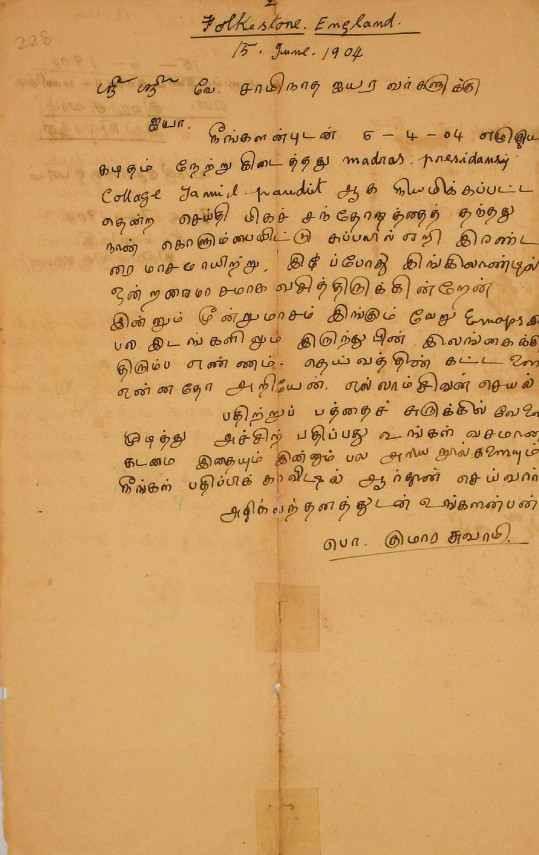 228.
2
Folkestone. England.
15. June. 1904
ஸ்ரீ ஸ்ரீ வே. சாமிநாத ஐயரவர்களுக்கு
ஐயா.
நீங்களன்புடன் 6-4-04 எழுதிய
கடிதம் நேற்று கிடைத்தது madras. presidancy
Collage Tamil pandit ஆக நியமிக்கப்பட்ட
தென்ற செய்தி மிகச் சந்தோஷத்தைத் தந்தது
நான் கொளும்பைவிட்டு கப்பலில் ஏறி இரண்ட
ரை மாசமாயிற்று. இப்போது இங்கிலாண்டில்
ஒன்றரைமாசமாக வசித்திருக்கின்றேன்
இன்னும் மூன்றுமாசம் இங்கும் வேறு
பல இடங்களிலும் இருந்து பின் இலங்கைக்கு
திரும்ப எண்ணம். தெய்வத்தின் கட்டளை
என்னதோ அறியேன். எல்லாம் சிவன் செயல்
பதிற்றுப் பத்தைச் சுடுக்கில் வேலை
முடித்து அச்சிற் பதிப்பது உங்கள் வசமான
கடமை இதையும் இன்னும் பல அரிய நூல்களையும்
நீங்கள் பதிப்பிக்காவிடில் ஆர்தான் செய்வார்
அதிக வந்தனத்துடன் உங்களன்பன்
பொ. குமாரசுவாமி.